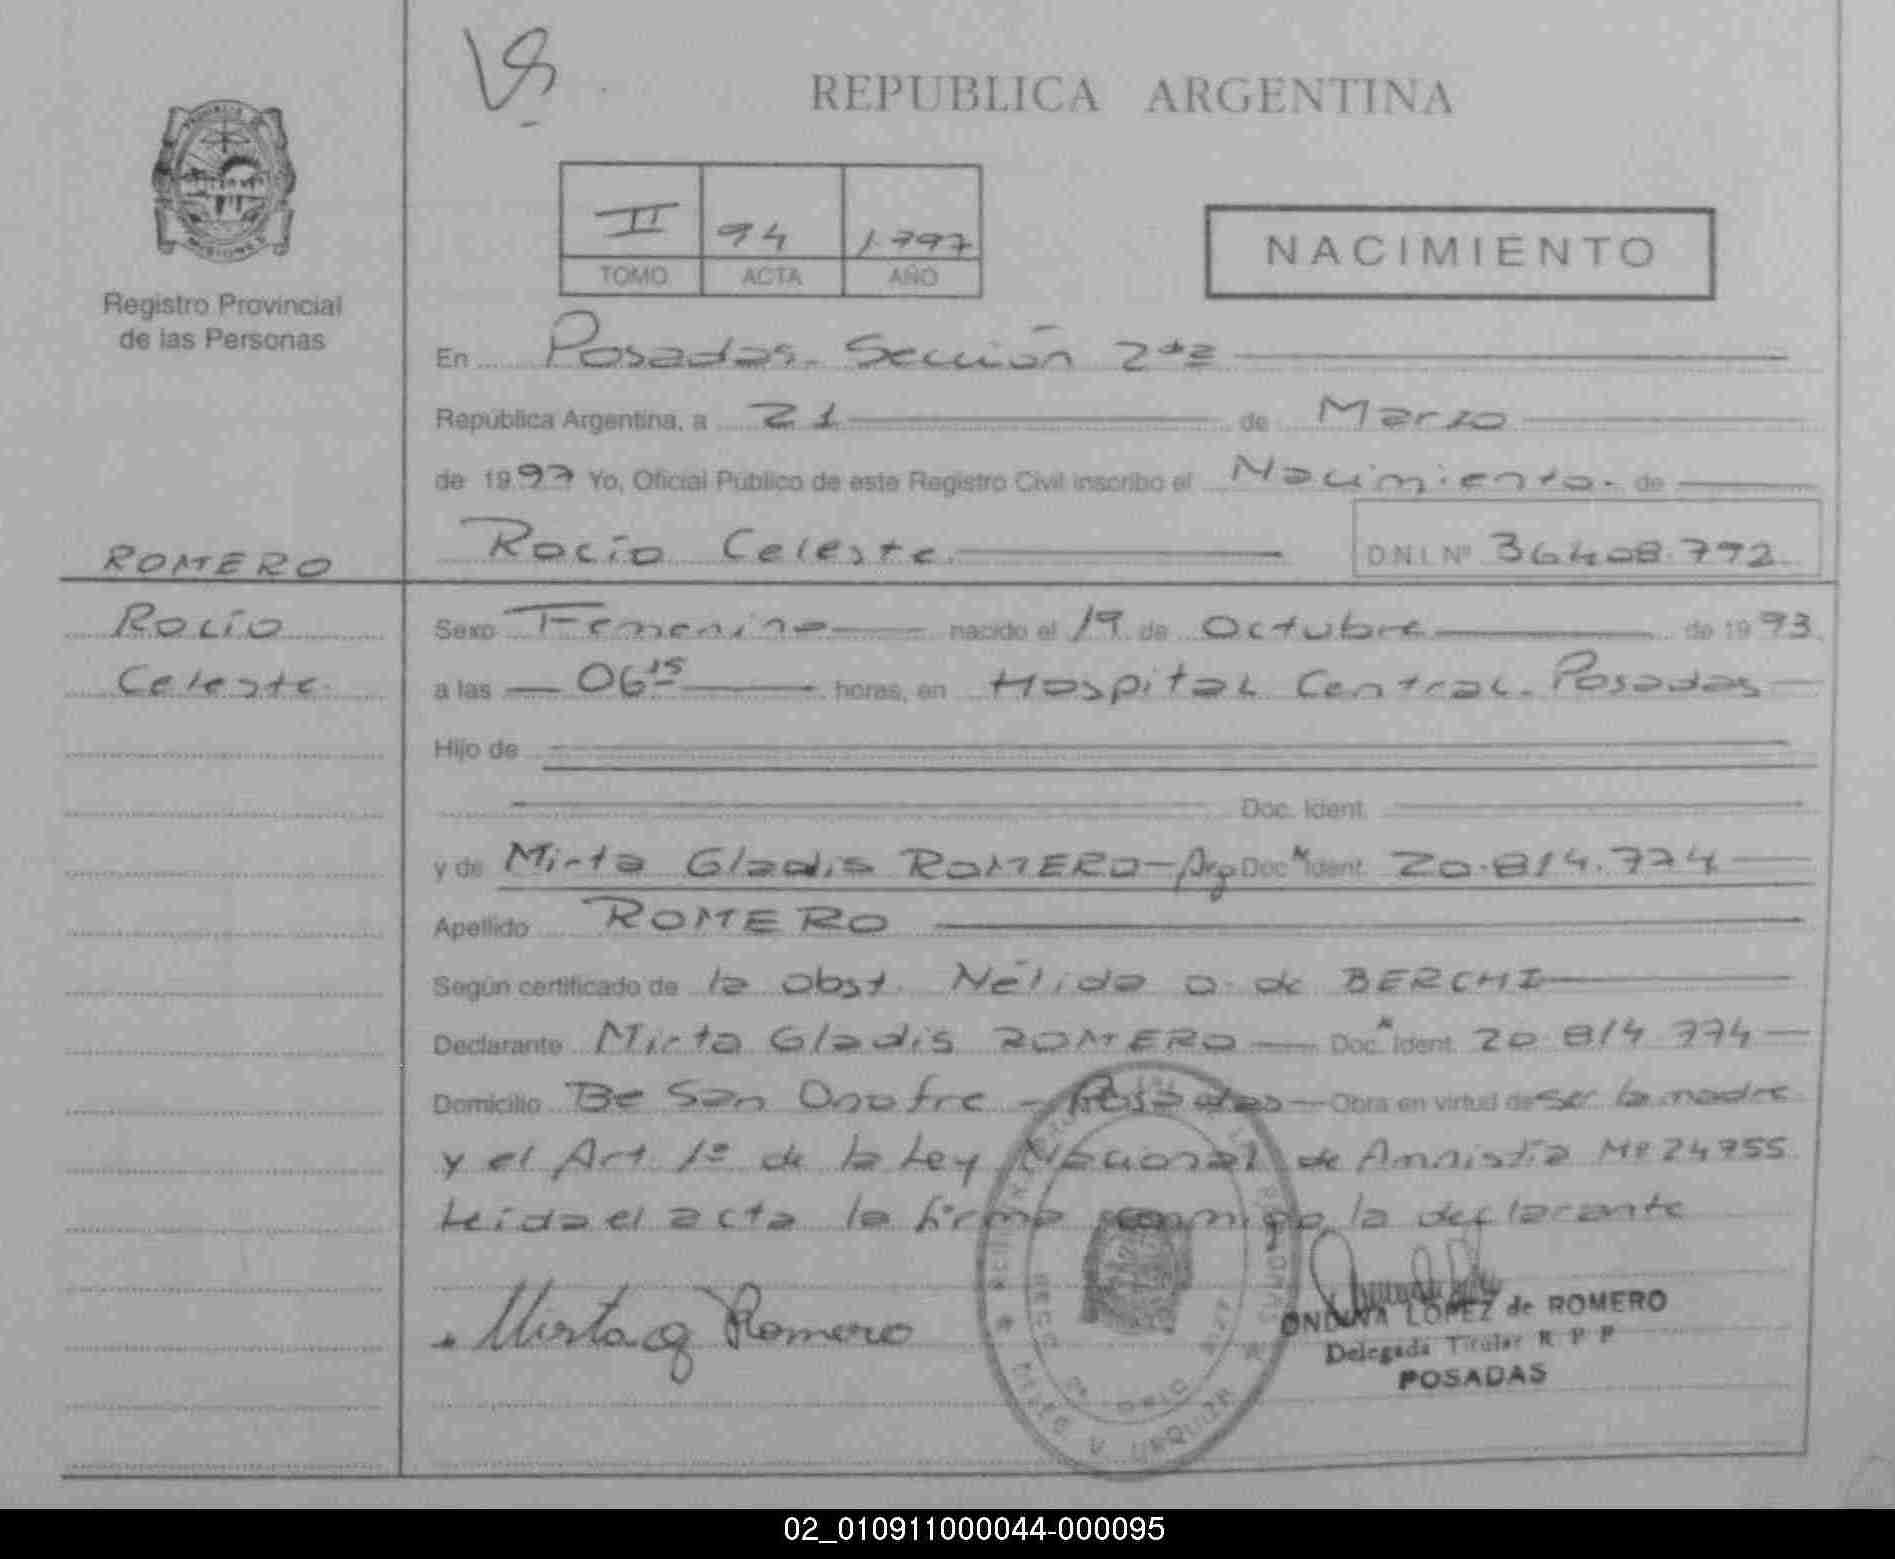 REPUBLICA ARGENTINA
MISIONES
Registro Provincial
de las Personas
II 94 1.997
TOMO ACTA AÑO
NACIMIENTO
En Posadas. Sección 2da
República Argentina, a 21 de Marzo
de 1997 Yo, Oficial Público de este Registro Civil inscribo el Nacimiento. de
ROMERO
Rocío Celeste
D.N.I. Nº 36.408.792
Rocío
Celeste.
Sexo Femenino nacido el 19 de Octubre de 1993
a las 06 15 horas, en Hospital Central. Posadas
Hijo de
Doc. Ident.
y de Mirta Gladis ROMERO - Arg Doc. Ident. 20.814.774
Apellido ROMERO
Según certificado de la obst. Nélida O. de BERCHI
Declarante Mirta Gladis ROMERO Doc. Ident. 20.814.774
Domicilio Bº San Onofre - Posadas Obra en virtud de ser la madre
y el Art. 1º de la Ley Nacional de Amnistía Nº 24755
Leída el acta la firma conmigo la declarante
Mirta G Romero
ONDINA LOPEZ de ROMERO
Delegada Titular R P P
POSADAS
02_010911000044-000095